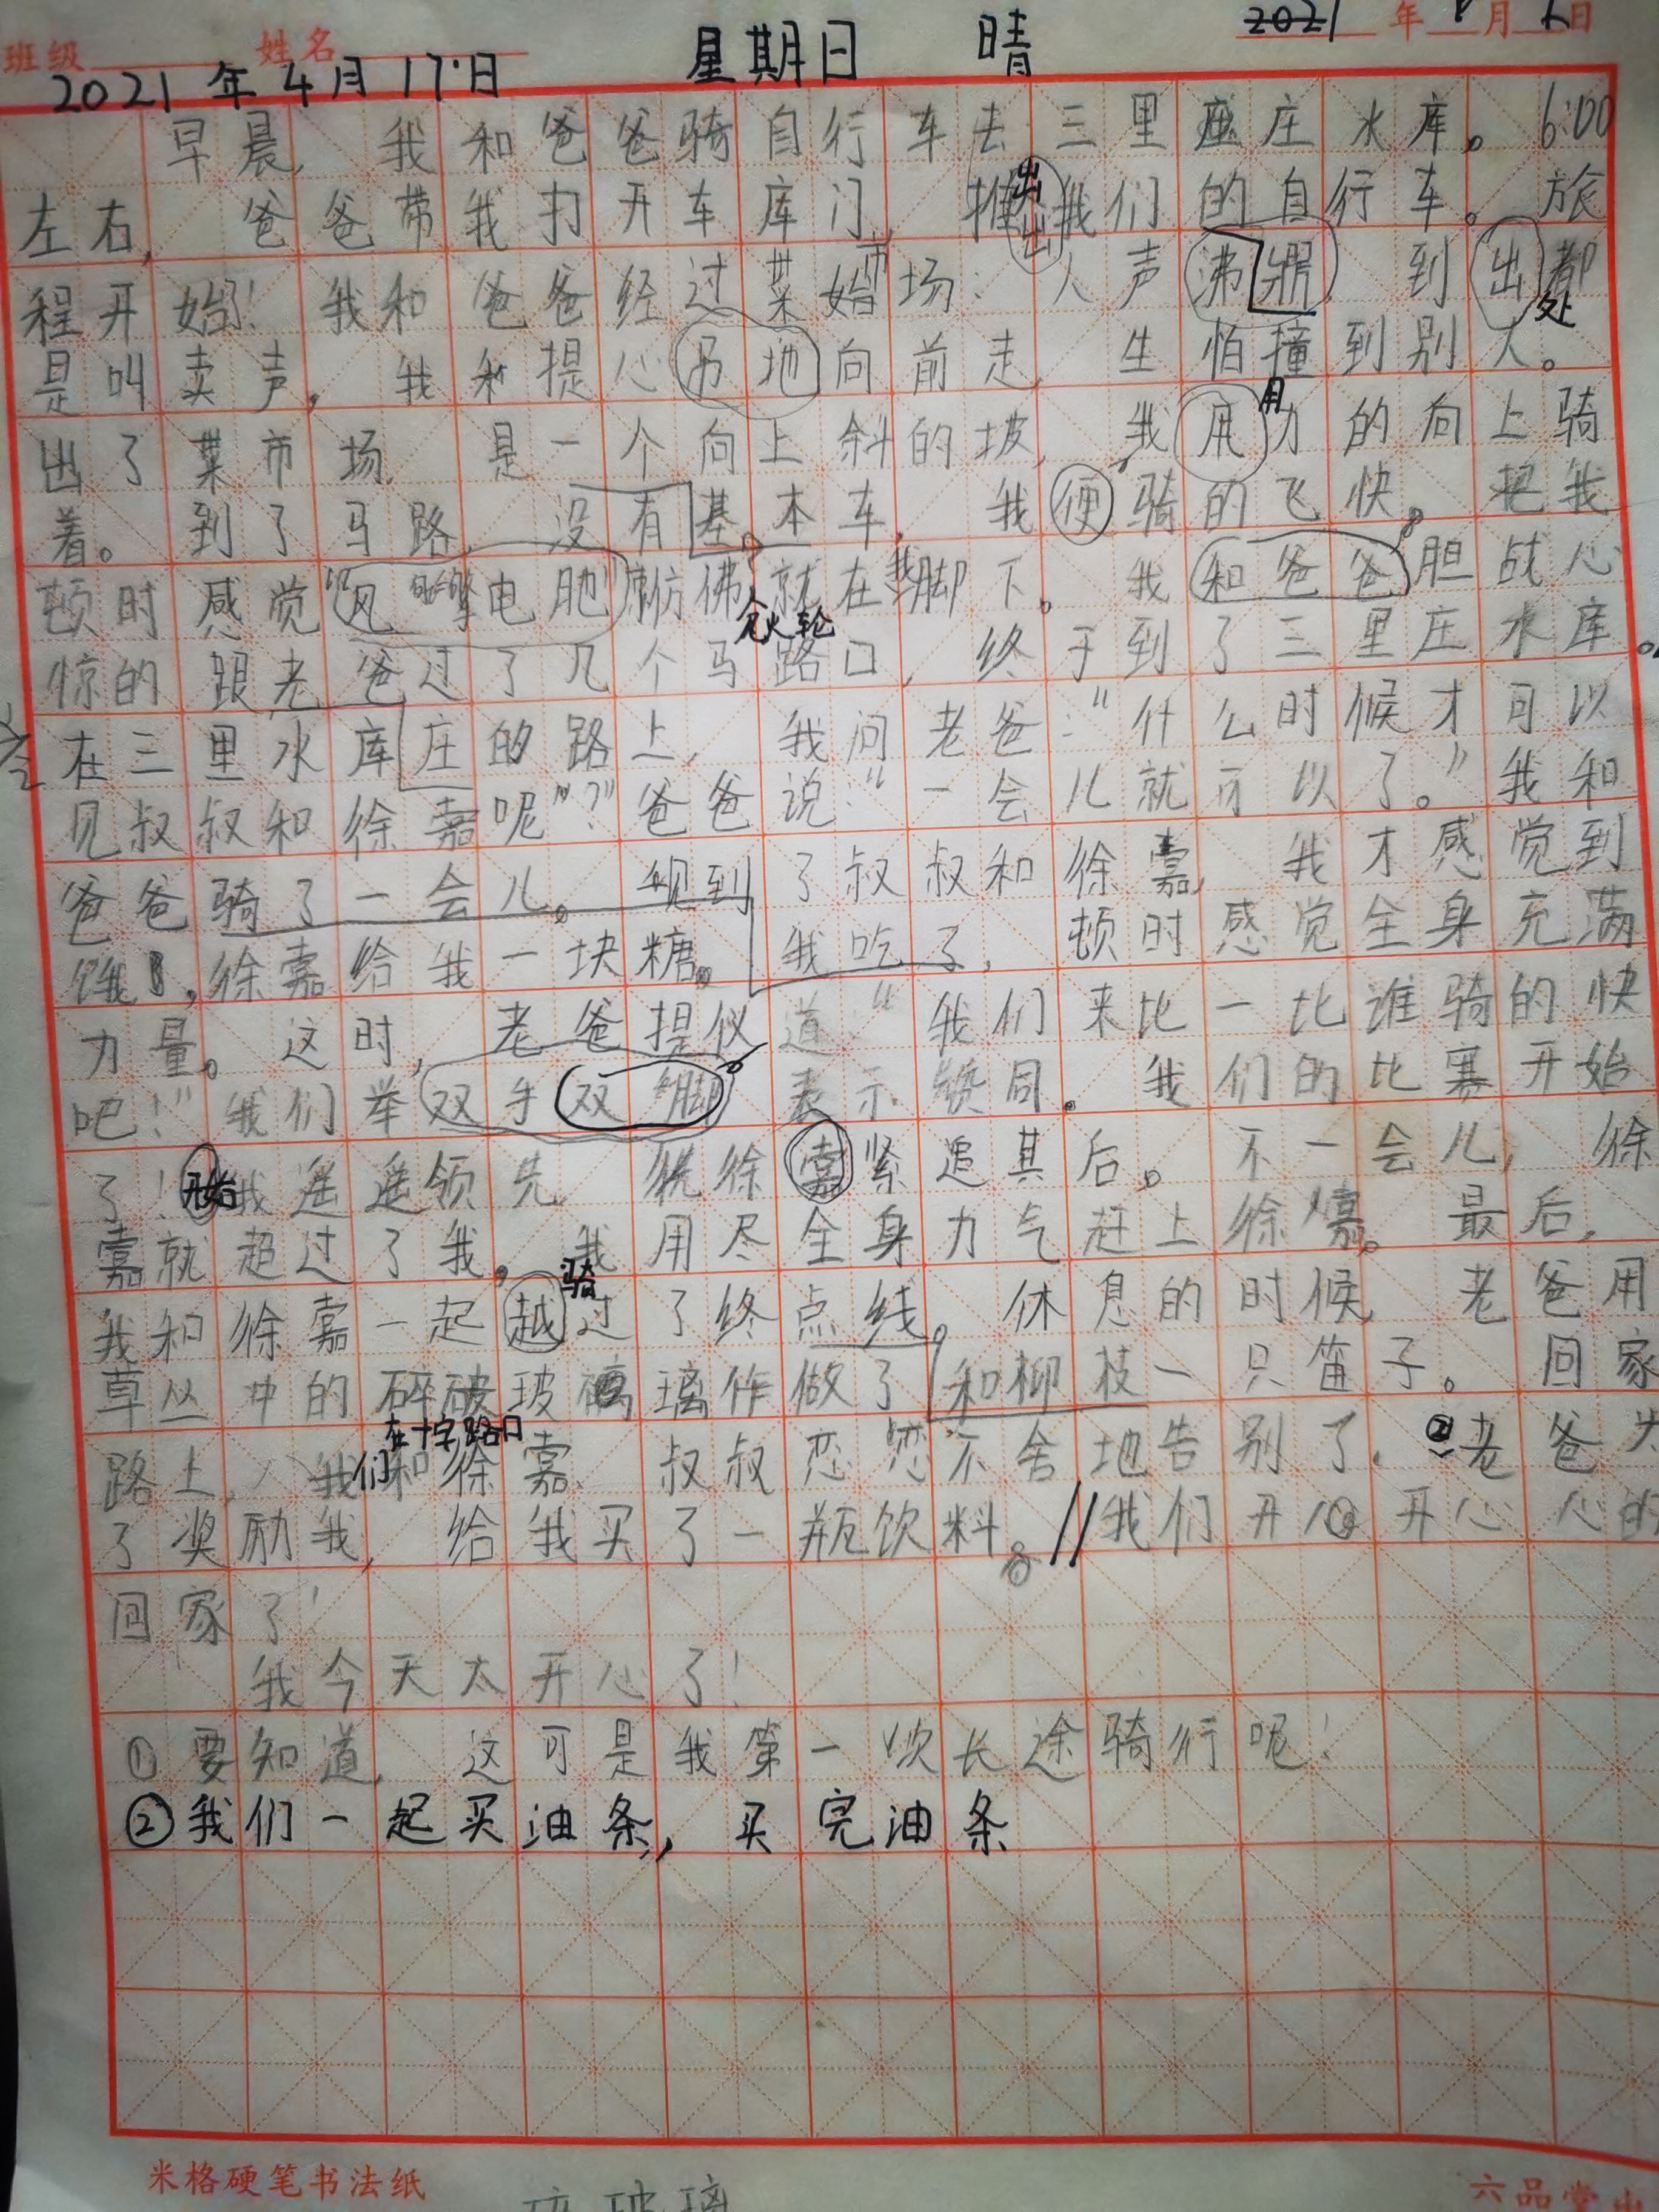 班级 姓名 2021年8月6日
2021年4月17日 星期日 晴
早晨,我和爸爸骑自行车去三里庄水库。6:00
左右,爸爸带我打开车库门,推出我们的自行车。旅
程开始!我和爸爸经过菜市场:人声沸鼎,到出处都
是叫卖声。我和提心吊地向前走,生怕撞到别人。
出了菜市场,是一个向上斜的坡,我用用力的向上骑
着。到了马路,没有基本车,我便骑的飞快。把我
顿时感觉“风驰电掣”仿佛就在我脚下。我和爸爸胆战心
火轮
惊的跟老爸过了几个马路口,终于到了三里庄水库。
在三里水库庄的路上,我问老爸:“什么时候才可以
见叔叔和徐嘉呢?”爸爸说:“一会儿就可以了。”我和
爸爸骑了一会儿。见到了叔叔和徐嘉,我才感觉到
饿,徐嘉给我一块糖。我吃了,顿时感觉全身充满
力量。这时,老爸提仪道:“我们来比一比谁骑的快
吧!”我们举双手双脚表示赞同。我们的比赛开始
了!开始我遥遥领先,徐嘉紧追其后。不一会儿,徐
嘉就超过了我。我用尽全身力气赶上徐嘉。最后,
骑
我和徐嘉一起越过了终点线。休息的时候,老爸用
草丛中的碎玻璃作做了和柳枝一只笛子。回家
在十字路口
路上,我们和徐嘉、叔叔恋恋不舍地告别了。②老爸为
了奖励我,给我买了一瓶饮料。//我们开心开心心的
回家了!
我今天太开心了!
①要知道,这可是我第一次长途骑行呢!
②我们一起买油条,买完油条
米格硬笔书法纸 六品堂出
玻璃